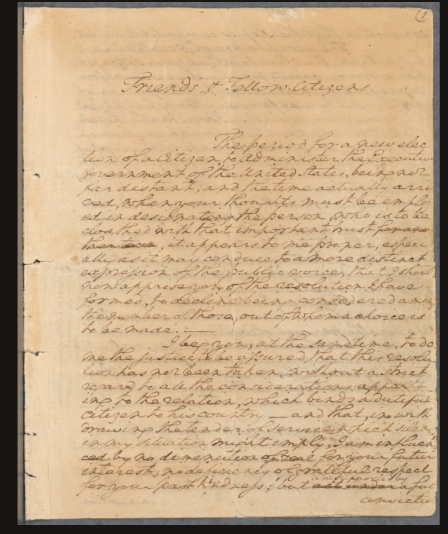 Friends & Fellow-Citizens
The period for a new elec
tion of a citizen, to Administer the Executive
government of the United States, being not
far distant, and the time actually arri
ved, when your thoughts must be employ
ed in designating the person, who is to be
cloathed with that important trust
, it appears to me proper, especi
ally as it may conduce to a more distinct
expression of the public voice, that I should
now apprise you of the resolution I have
formed, to decline being considered among
the number of those, out of whom a choice is
to be made.
I beg you, at the same time, to do
me the justice to be assured, that this resolu
tion has not been taken, without a strict
regard to all the considerations appertain
ing to the relation, which binds a dutiful
citizen to his country — and that, in with
drawing the tender of service which silence
in my situation might imply, I am influen
ced by no diminution of zeal for your future
interest, no deficiency of grateful respect
for your past kindness; but a full
convictio